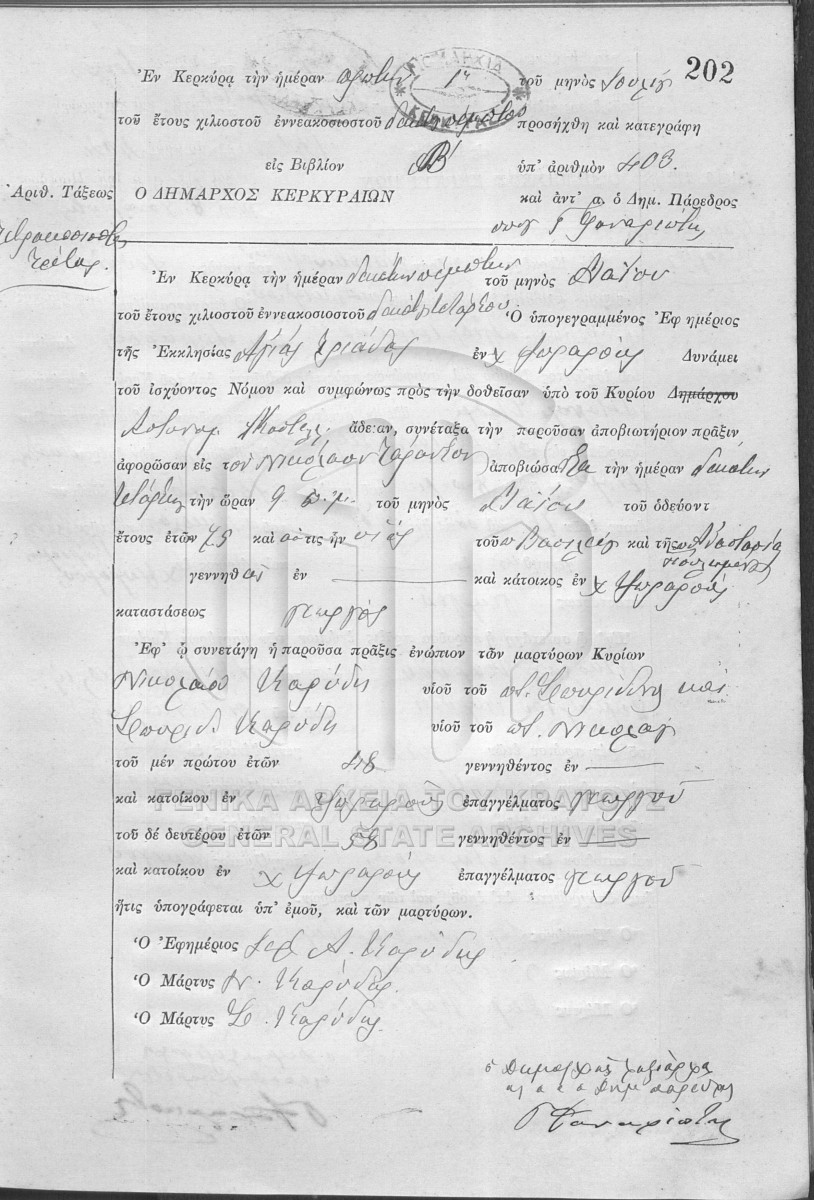 202
Ἐν Κερκύρᾳ τὴν ἡμέραν πρώτην 1ην τοῦ μηνὸς Ἰουλίου
τοῦ ἔτους χιλιοστοῦ ἐννεακοσιοστοῦ δεκάτου πέμπτου προσήχθη καὶ κατεγράφη
εἰς Βιβλίον Β' ὑπ' ἀριθμὸν 403.
Ἀριθ. Τάξεως Ο ΔΗΜΑΡΧΟΣ ΚΕΡΚΥΡΑΙΩΝ καὶ ἀντ' α. ὁ Δημ. Πάρεδρος
Γ Φαναριώτης
Ἐν Κερκύρᾳ τὴν ἡμέραν δεκάτην πέμπτην τοῦ μηνὸς Μαΐου
τοῦ ἔτους χιλιοστοῦ ἐννεακοσιοστοῦ δεκάτου τετάρτου Ὁ ὑπογεγραμμένος Ἐφημέριος
τῆς Ἐκκλησίας Ἁγίας Τριάδος ἐν χ Ψωραρούς Δυνάμει
τοῦ ἰσχύοντος Νόμου καὶ συμφώνως πρὸς τὴν δοθεῖσαν ὑπὸ τοῦ Κυρίου Δημάρχου
Ἀστυνομ ἄδειαν, συνέταξα τὴν παροῦσαν ἀποβιωτήριον πρᾶξιν
ἀφορῶσαν εἰς τὸν Νικόλαον ἀποβιώσαντα τὴν ἡμέραν δεκάτην
τετάρτην τὴν ὥραν 9 π.μ. τοῦ μηνὸς Μαΐου τοῦ ὁδεύοντ
ἔτους ἐτῶν 75 καὶ ὅστις ἦν υἱὸς τοῦ π Βασιλείου καὶ τῆς π Ἀναστασίας
γεννηθεὶς ἐν καὶ κάτοικος ἐν χ Ψωραρούς
καταστάσεως γεωργός
Ἐφ' ᾧ συνετάγη ἡ παροῦσα πρᾶξις ἐνώπιον τῶν μαρτύρων Κυρίων
Νικολάου Καρύδη υἱοῦ τοῦ ποτ. Σπυρίδωνος καὶ
Σπυριδ. Καρύδη υἱοῦ τοῦ ποτ. Νικολάου
τοῦ μέν πρώτου ἐτῶν 48 γεννηθέντος ἐν
καὶ κατοίκου ἐν Ψωραρούς ἐπαγγέλματος γεωργοῦ
τοῦ δέ δευτέρου ἐτῶν 58 γεννηθέντος ἐν
καὶ κατοίκου ἐν χ Ψωραρούς ἐπαγγέλματος γεωργοῦ
ἥτις ὑπογράφεται ὑπ' ἐμοῦ, καὶ τῶν μαρτύρων.
Ὁ Ἐφημέριος Ἱερ Α. Καρύδης
Ὁ Μάρτυς Ν. Καρύδης
Ὁ Μάρτυς Σ. Καρύδης
ΓΕΝΙΚΑ ΑΡΧΕΙΑ ΤΟΥ ΚΡΑΤΟΥΣ
GENERAL STATE ARCHIVES
Γ Φαναριώτης